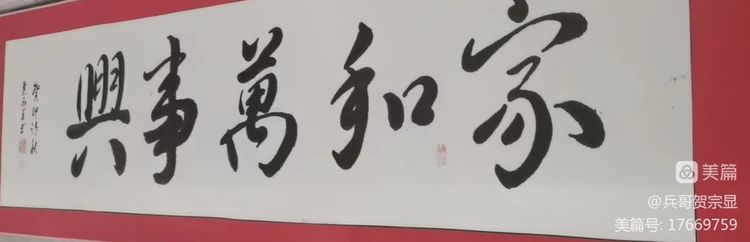 家和萬事興
癸卯清秋
美篇
@兵哥贺宗显
美篇号: 17669759